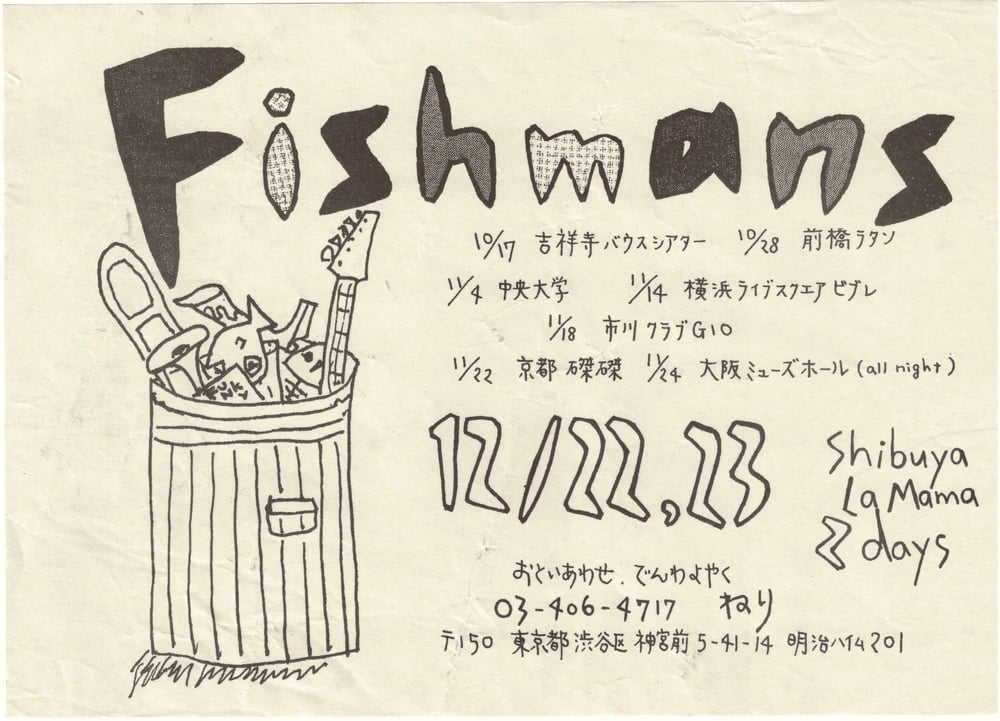 Fishmans
10/17 吉祥寺バウスシアター 10/28 前橋ラタン
11/4 中央大学 11/14 横浜ライブスクエアビブレ
11/18 市川クラブGIO
11/22 京都磔磔 11/24 大阪ミューズホール(all night)
12/22,23
Shibuya
La Mama
2 days
おといあわせ、でんわよやく
03-406-4717 ねり
〒150 東京都渋谷区神宮前5-41-14 明治ハイム201